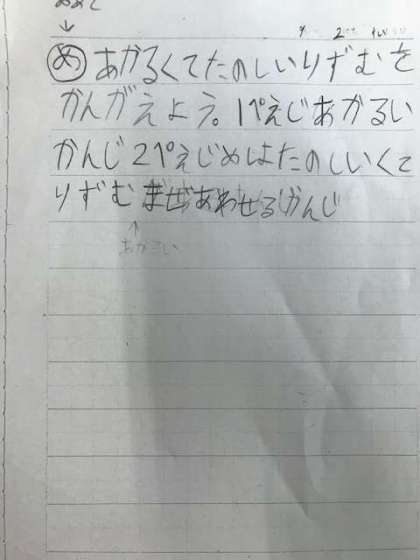 めあて
め あかるくてたのしいりずむを
かんがえよう。1ぺえじあかるい
かんじ2ぺえじめはたのしいくて
りずむまぜあわせるかんじ